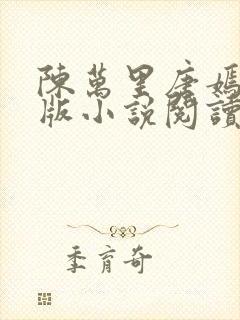 陳萬里唐嫣
版小說閱讀
季育奇